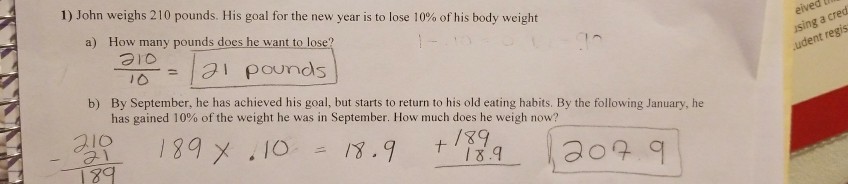 eived
using a cred
udent regis
1) John weighs 210 pounds. His goal for the new year is to lose 10% of his body weight
a) How many pounds does he want to lose?
210
10
= 21 pounds
b) By September, he has achieved his goal, but starts to return to his old eating habits. By the following January, he
has gained 10% of the weight he was in September. How much does he weigh now?
210
- 21
189
189 x .10 = 18.9
+ 189
18.9
207.9